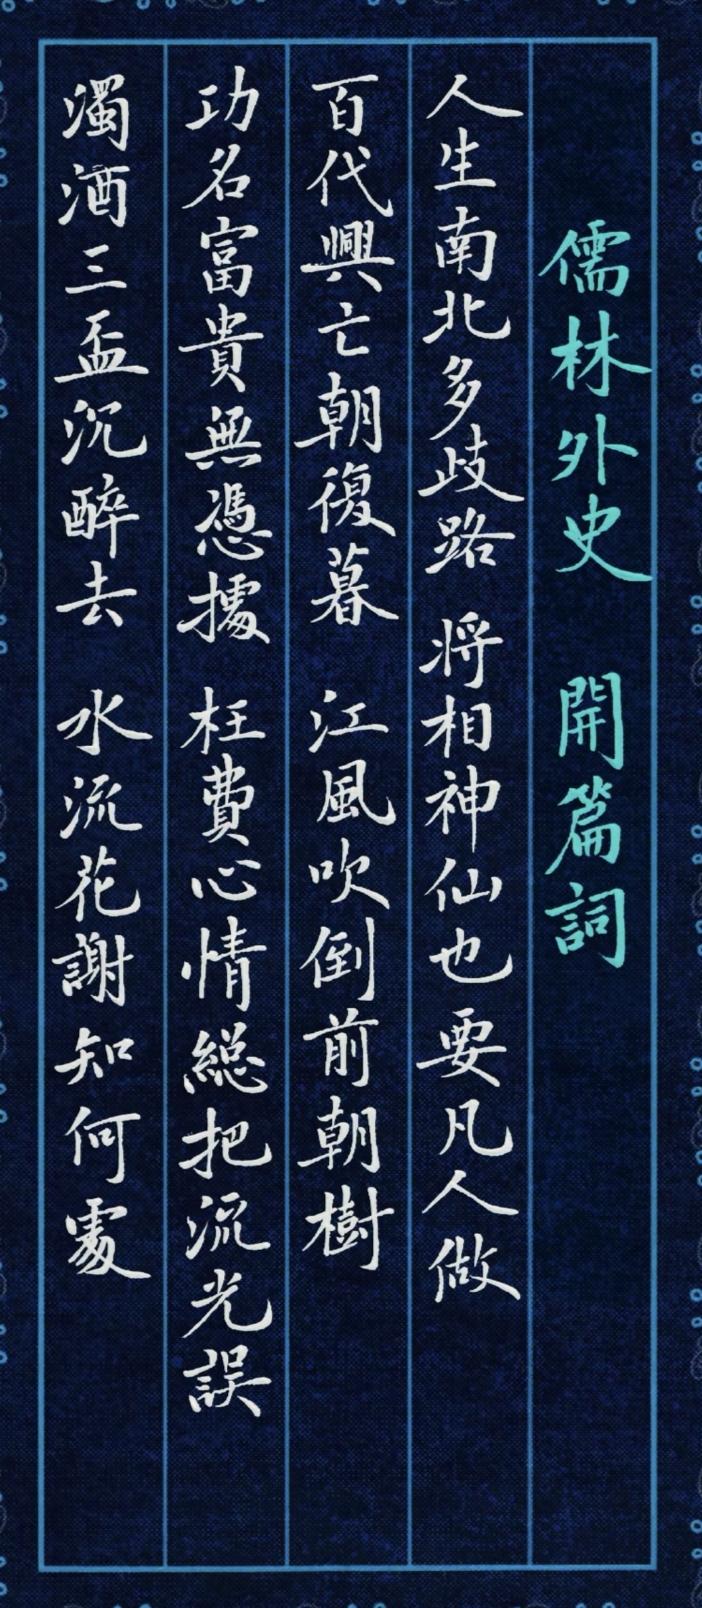 儒林外史 開篇詞
人生南北多歧路 将相神仙也要凡人做
百代興亡朝復暮 江風吹倒前朝樹
功名富貴無憑據 枉費心情総把流光誤
濁酒三盃沉醉去 水流花謝知何處